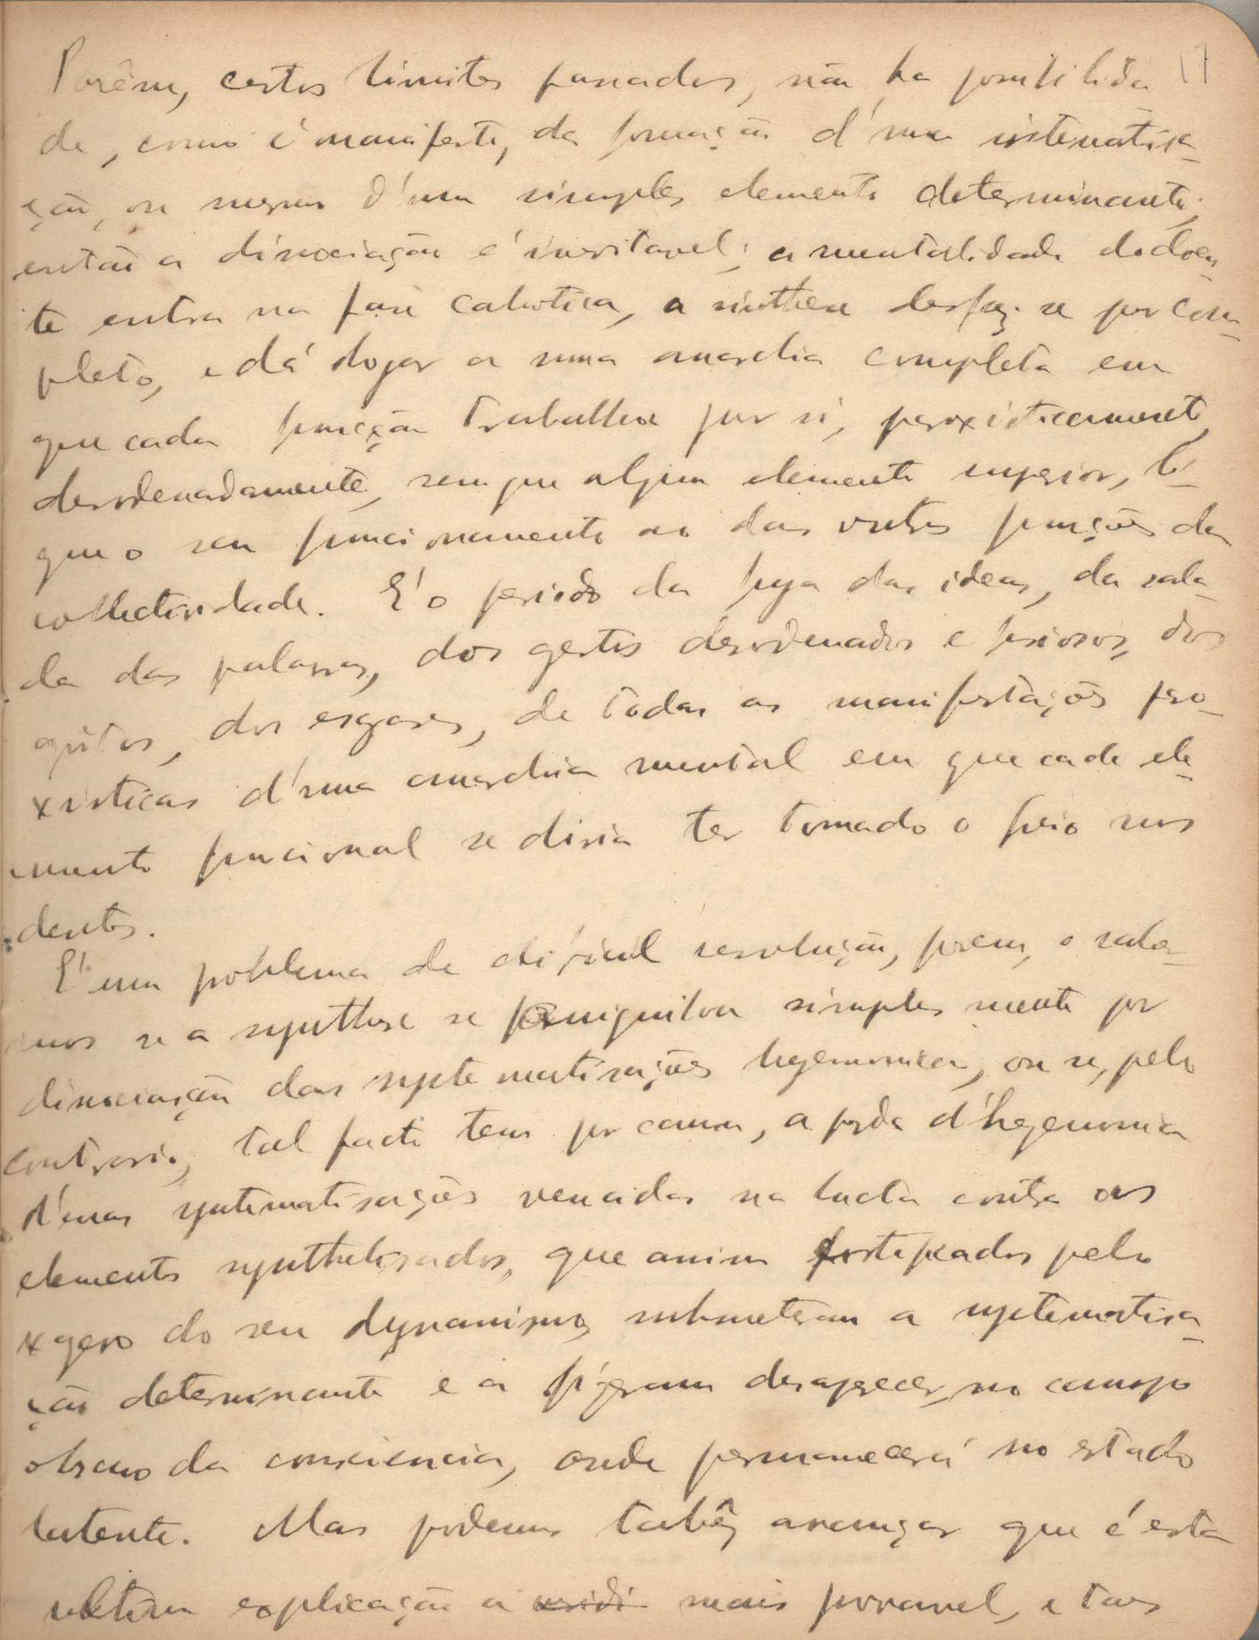 17
Porêm, certos limites passados, não ha possibilida
de, como é manifesto, da formação d'uma sistematisa-
ção, ou mesmo d'um simples elemento determinante;
então a dissociação é inevitavel; a mentalidade do doen-
te entra na fase cahotica, a sinthese desfaz-se por com-
pleto, e dá logar a uma anarchia completa em
que cada função trabalha por si, paroxisticamente,
desordenadamente, sem que algum elemento superior, li-
gue o seu funcionamento ao das outras funções da
collectividade. E' o periodo da fuga das ideas, da sala-
da das palavras, dos gestos desordenados e furiosos, dos
gritos, dos esgares, de todas as manifestações paro-
xisticas d'uma anarchia mental em que cada ele-
mento funcional se diria ter tomado o freio nos
dentes.
E' um problema de dificil resolução, porem, o saber-
mos se a synthese se aniquilou simples mente por
dissociação das systematisações hegemonicas, ou se, pelo
contrario, tal facto tem por causa, a perda d'hegemonia
d'essas systematisações vencidas na lucta contra os
elementos synthetisados, que assim fortificados pelo
exagero do seu dynamismo, submeteram a systematisa-
ção determinante e a fizeram desaparecer, no campo
obscuro da consciencia, onde permanecerá no estado
latente. Mas podemos tabêm avançar que é esta
ultima explicação a mais provavel, e tais